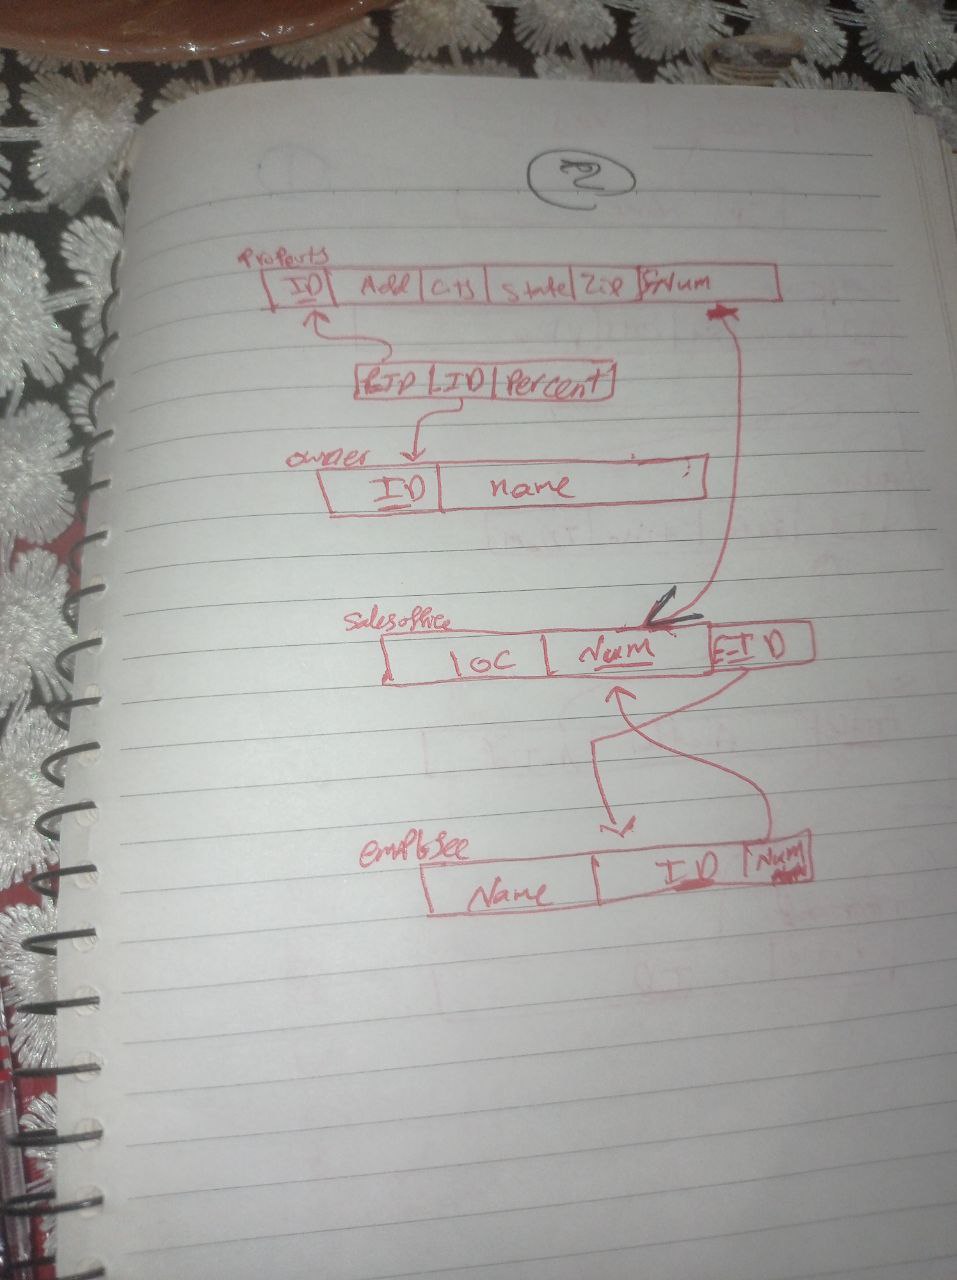 2
Property
ID Add City State Zip SNum
PID ID Percent
owner
ID name
Salesoffice
loc Num E-ID
employee
Name ID Num